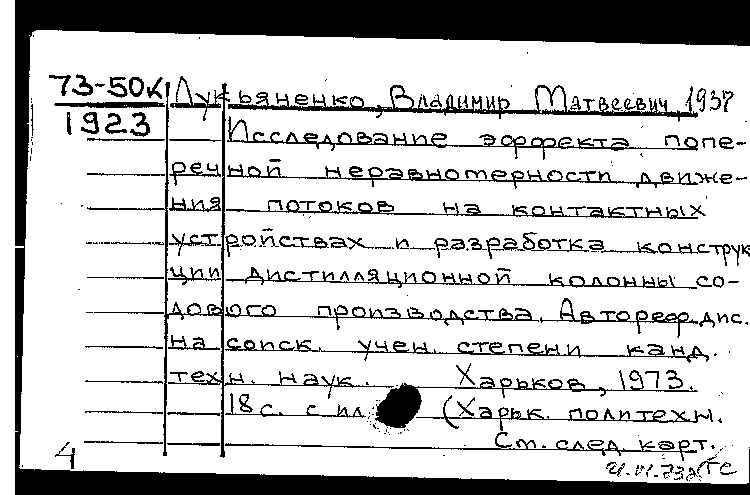 73-50к Лукьяненко, Владимир Матвеевич, 1937
1923 Исследование эффекта попе-
речной неравномерности движе-
ния потоков на контактных
устройствах и разработка конструк
ции дистилляционной колонны со-
дового производства. Автореф. дис.
на соиск. учен. степени канд.
техн. наук. Харьков, 1973.
18 с. с ил (Харьк. политехн.
См. след. карт.
4
ГС